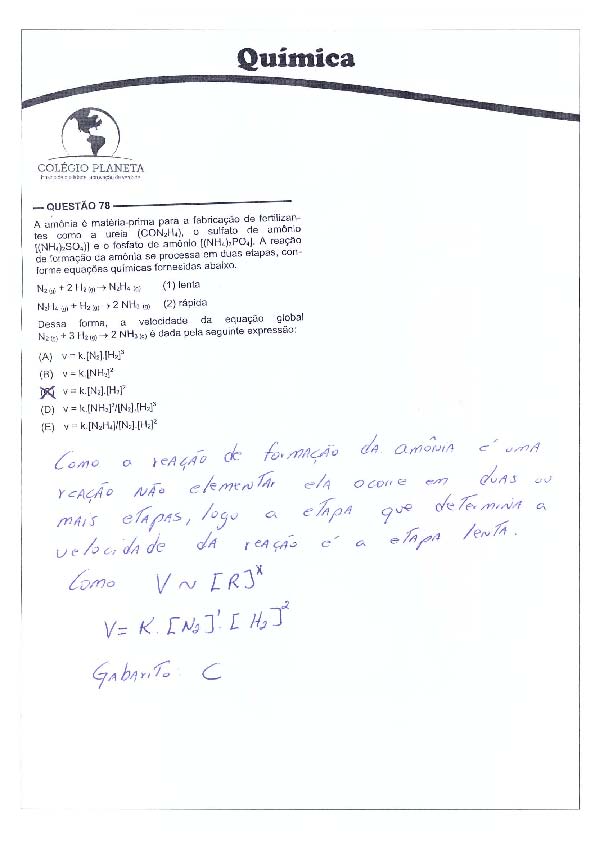 Química
COLÉGIO PLANETA
QUESTÃO 78
A amônia é matéria-prima para a fabricação de fertilizan-
tes como a ureia (CON₂H₄), o sulfato de amônio
[(NH₄)₂SO₄)] e o fosfato de amônio [(NH₄)₃PO₄]. A reação
de formação da amônia se processa em duas etapas, con-
forme equações químicas fornecidas abaixo.
N₂ (g) + 2 H₂ (g) → N₂H₄ (g) (1) lenta
N₂H₄ (g) + H₂ (g) → 2 NH₃ (g) (2) rápida
Dessa forma, a velocidade da equação global
N₂ (g) + 3 H₂ (g) → 2 NH₃ (g) é dada pela seguinte expressão:
(A) v = k.[N₂].[H₂]³
(B) v = k.[NH₃]²
(C) v = k.[N₂].[H₂]²
(D) v = k.[NH₃]²/[N₂].[H₂]³
(E) v = k.[N₂H₄]/[N₂].[H₂]²
Como a reação de formação da amônia é uma
reação não elementar ela ocorre em duas ou
mais etapas, logo a etapa que determina a
velocidade da reação é a etapa lenta.
Como V ~ [R]ˣ
V = K. [N₂]¹. [H₂]²
Gabarito: C